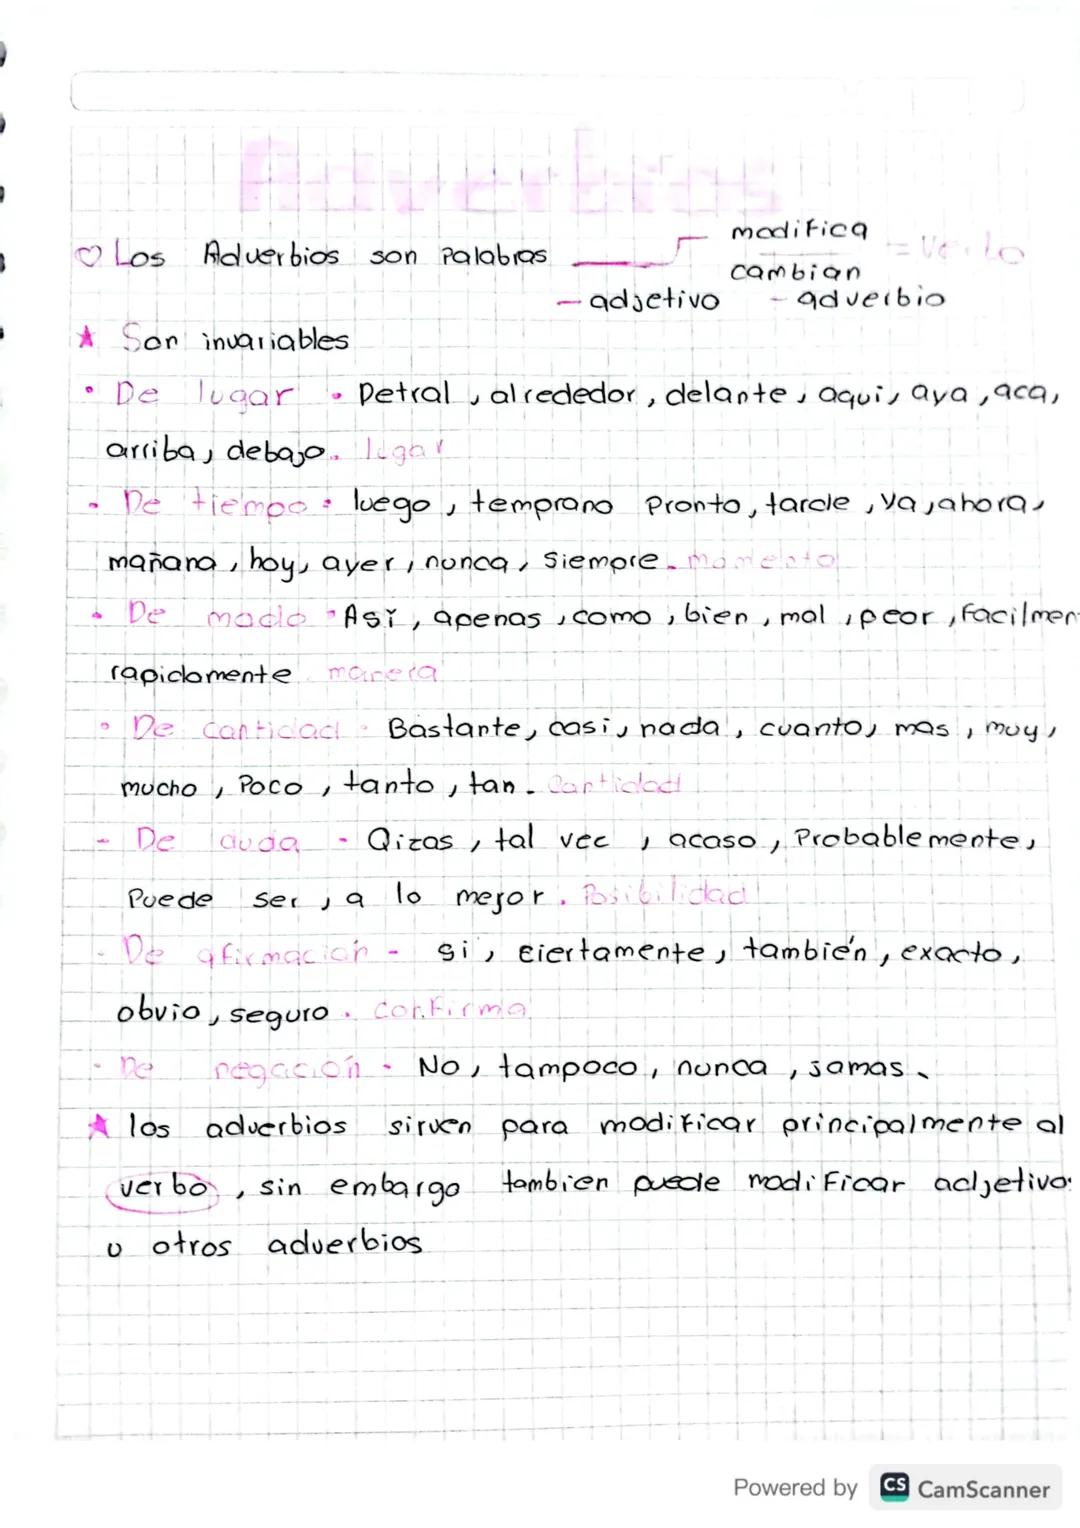 Adverbios
♡ Los Adverbios son palabras modifica = Verbo
cambian
- adjetivo - adverbio
★ Son invariables
• De lugar • Detral, alrededor, delante, aqui, aya, aca,
arriba, debajo. lugar
• De tiempo • luego, temprano Pronto, tarde, ya, ahora,
mañana, hoy, ayer, nunca, siempre. momento
• De modo • Así, apenas, como, bien, mal, peor, Facilmen
rapidamente manera
• De cantidad • Bastante, casi, nada, cuanto, mas, muy,
mucho, Poco, tanto, tan. Cantidad
- De duda - Qizas, tal vec, acaso, Probablemente,
Puede ser, a lo mejor. Posibilidad
- De afirmacion - si, ciertamente, también, exacto,
obvio, seguro. Confirma
- De negación - No, tampoco, nunca, jamas.
★ los adverbios sirven para modificar principalmente al
verbo, sin embargo tambien puede modificar adjetivos
u otros adverbios
Powered by CS CamScanner